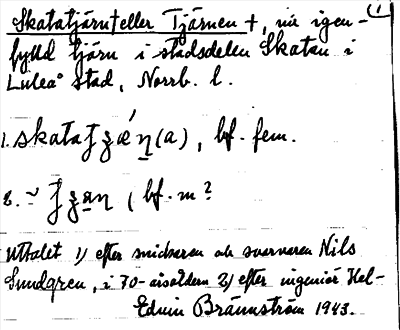 (1
Skatatjärn† eller Tjärnen †, nu igen-
fylld tjärn i stadsdelen Skatan i
Luleå stad, Norrb. l.
1. skata (a), bf. fem.
2. ~ bf. m?
Uttalet 1) efter snickaren och svarvaren Nils
Sundgren, i 70-årsåldern 2) efter ingeniör Hel-
Edvin Brännström 1943.